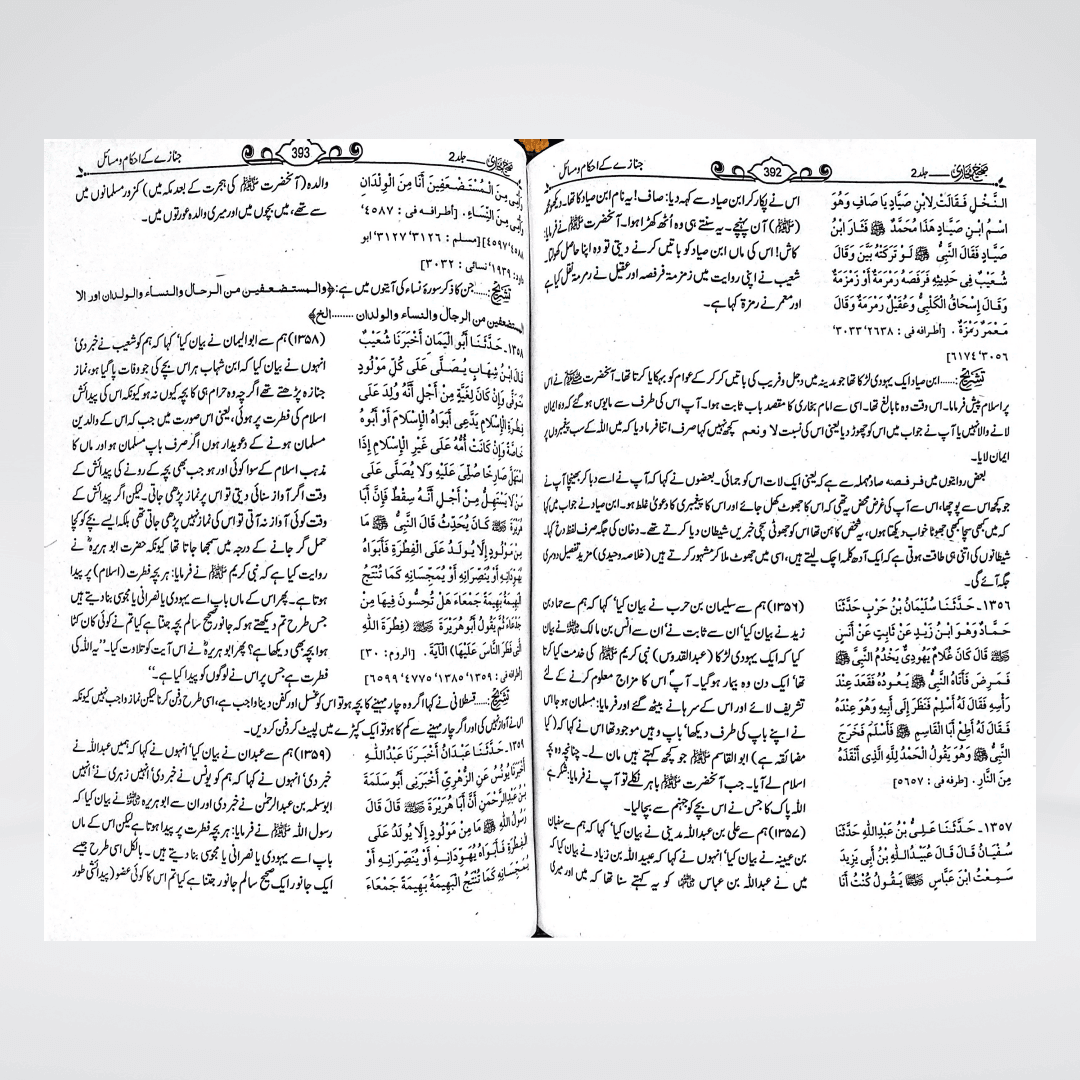 صحیح بخاری جلد 2 392 جنازے کے احکام و مسائل
النَّخْلِ فَقَالَتْ لِابْنِ صَيَّادٍ يَا صَافِ وَهُوَ
اسْمُ ابْنِ صَيَّادٍ هَذَا مُحَمَّدٌ ﷺ فَثَارَ ابْنُ
صَيَّادٍ فَقَالَ النَّبِيُّ ﷺ لَوْ تَرَكَتْهُ بَيَّنَ وَقَالَ
شُعَيْبٌ فِي حَدِيثِهِ فَرَفَصَهُ رَمْرَمَةٌ أَوْ زَمْزَمَةٌ
وَقَالَ إِسْحَاقُ الْكَلْبِيُّ وَعُقَيْلٌ رَمْرَمَةٌ وَقَالَ
مَعْمَرٌ رَمْزَةٌ . [أطرافه في : ٢٦٣٨، ٣٠٣٣،
٣٠٥٦، ٦١٧٤]
اس نے پکار کر ابن صیاد سے کہہ دیا: صاف! یہ نام ابن صیاد کا تھا۔ دیکھو محمد
(ﷺ) آن پہنچے۔ یہ سنتے ہی وہ اٹھ کھڑا ہوا۔ آنحضرت ﷺ نے فرمایا:
کاش! اس کی ماں ابن صیاد کو باتیں کرنے دیتی تو وہ اپنا حال کھولتا۔
شعیب نے اپنی روایت میں زمزمۃ فرفصہ اور عقیل نے رمرمۃ نقل کیا ہے
اور معمر نے رمزۃ کہا ہے۔
تشریح: ...... ابن صیاد ایک یہودی لڑکا تھا جو مدینہ میں دجل و فریب کی باتیں کر کر کے عوام کو بہکایا کرتا تھا۔ آنحضرت ﷺ نے اس
پر اسلام پیش فرمایا۔ اس وقت وہ نابالغ تھا۔ اسی سے امام بخاری کا مقصد باب ثابت ہوا۔ آپ اس کی طرف سے مایوس ہو گئے کہ وہ ایمان
لانے والا نہیں یا آپ نے جواب میں اس کو چھوڑ دیا یعنی اس کی نسبت لا و نعم کچھ نہیں کہا صرف اتنا فرما دیا کہ میں اللہ کے سب پیغمبروں پر
ایمان لایا۔
بعض روایتوں میں فرفصہ صاد مہملہ سے ہے یعنی ایک لات اس کو جمائی۔ بعضوں نے کہا کہ آپ نے اسے دبا کر بھینچا آپ نے
جو کچھ اس سے پوچھا، اس سے آپ کی غرض محض یہ تھی کہ اس کا جھوٹ کھل جائے اور اس کا پیغمبری کا دعویٰ غلط ہو۔ ابن صیاد نے جواب میں کہا
کہ میں کبھی سچا کبھی جھوٹا خواب دیکھتا ہوں، یہ شخص کاہن تھا اس کو جھوٹی سچی خبریں شیطان دیا کرتے تھے۔ دخان کی جگہ صرف لفظ دخ کہا۔
شیطانوں کی اتنی ہی طاقت ہوتی ہے کہ ایک آدھ کلمہ اچک لیتے ہیں، اسی میں جھوٹ ملا کر مشہور کرتے ہیں (خلاصہ وحیدی) مزید تفصیل دوسری
جگہ آئے گی۔
١٣٥٦۔ حَدَّثَنَا سُلَيْمَانُ بْنُ حَرْبٍ حَدَّثَنَا
حَمَّادٌ وَهُوَ ابْنُ زَيْدٍ عَنْ ثَابِتٍ عَنْ أَنَسٍ
قَالَ كَانَ غُلَامٌ يَهُودِيٌّ يَخْدُمُ النَّبِيَّ ﷺ
فَمَرِضَ فَأَتَاهُ النَّبِيُّ ﷺ يَعُودُهُ فَقَعَدَ عِنْدَ
رَأْسِهِ فَقَالَ لَهُ أَسْلِمْ فَنَظَرَ إِلَى أَبِيهِ وَهُوَ عِنْدَهُ
فَقَالَ لَهُ أَطِعْ أَبَا الْقَاسِمِ ﷺ فَأَسْلَمَ فَخَرَجَ
النَّبِيُّ ﷺ وَهُوَ يَقُولُ الْحَمْدُ لِلَّهِ الَّذِي أَنْقَذَهُ
مِنَ النَّارِ . [طرفه في : ٥٦٥٧]
(۱۳۵۶) ہم سے سلیمان بن حرب نے بیان کیا، کہا کہ ہم سے حماد بن
زید نے بیان کیا، ان سے ثابت نے، ان سے انس بن مالک نے بیان
کیا کہ ایک یہودی لڑکا (عبدالقدوس) نبی کریم ﷺ کی خدمت کیا کرتا
تھا، ایک دن وہ بیمار ہو گیا۔ آپؐ اس کا مزاج معلوم کرنے کے لئے
تشریف لائے اور اس کے سرہانے بیٹھ گئے اور فرمایا: مسلمان ہو جا اس
نے اپنے باپ کی طرف دیکھا، باپ وہیں موجود تھا اس نے کہا کہ (کیا
مضائقہ ہے) ابوالقاسم ﷺ جو کچھ کہتے ہیں مان لے۔ چنانچہ وہ بچہ
اسلام لے آیا۔ جب آنحضرت ﷺ باہر نکلے تو آپ نے فرمایا: شکر ہے
اللہ پاک کا جس نے اس بچے کو جہنم سے بچا لیا۔
١٣٥٧۔ حَدَّثَنَا عَلِيُّ بْنُ عَبْدِاللَّهِ حَدَّثَنَا
سُفْيَانُ قَالَ قَالَ عُبَيْدُاللَّهِ بْنُ أَبِي يَزِيدَ
سَمِعْتُ ابْنَ عَبَّاسٍ يَقُولُ كُنْتُ أَنَا
(۱۳۵۷) ہم سے علی بن عبداللہ مدینی نے بیان کیا، کہا کہ ہم سے سفیان
بن عیینہ نے بیان کیا، انہوں نے کہا کہ عبیداللہ بن زیاد نے بیان کیا کہ
میں نے عبداللہ بن عباس کو یہ کہتے سنا تھا کہ میں اور میری
صحیح بخاری جلد 2 393 جنازے کے احکام و مسائل
وَأُمِّي مِنَ الْمُسْتَضْعَفِينَ أَنَا مِنَ الْوِلْدَانِ
وَأُمِّي مِنَ النِّسَاءِ . [أطرافه في : ٤٥٨٧،
٤٥٨٨، ٤٥٩٧] [مسلم : ٣١٢٦، ٣١٢٧ ابو
داود: ١٩٣٩، نسائی : ٣٠٣٢]
والدہ (آنحضرت ﷺ کی ہجرت کے بعد مکہ میں) کمزور مسلمانوں میں
سے تھے، میں بچوں میں اور میری والدہ عورتوں میں۔
تشریح: ...... جن کا ذکر سورۂ نساء کی آیتوں میں ہے: ﴿والمستضعفین من الرجال والنساء والولدان اور الا
المستضعفین من الرجال والنساء والولدان ........ الخ﴾
١٣٥٨۔ حَدَّثَنَا أَبُو الْيَمَانِ أَخْبَرَنَا شُعَيْبٌ
قَالَ ابْنُ شِهَابٍ يُصَلَّى عَلَى كُلِّ مَوْلُودٍ
مُتَوَفًّى وَإِنْ كَانَ لِغَيَّةٍ مِنْ أَجْلِ أَنَّهُ وُلِدَ عَلَى
فِطْرَةِ الْإِسْلَامِ يَدَّعِي أَبَوَاهُ الْإِسْلَامَ أَوْ أَبُوهُ
خَاصَّةً وَإِنْ كَانَتْ أُمُّهُ عَلَى غَيْرِ الْإِسْلَامِ إِذَا
اسْتَهَلَّ صَارِخًا صُلِّيَ عَلَيْهِ وَلَا يُصَلَّى عَلَى
مَنْ لَا يَسْتَهِلُّ مِنْ أَجْلِ أَنَّهُ سِقْطٌ فَإِنَّ أَبَا
هُرَيْرَةَ كَانَ يُحَدِّثُ قَالَ النَّبِيُّ ﷺ مَا
مِنْ مَوْلُودٍ إِلَّا يُولَدُ عَلَى الْفِطْرَةِ فَأَبَوَاهُ
يُهَوِّدَانِهِ أَوْ يُنَصِّرَانِهِ أَوْ يُمَجِّسَانِهِ كَمَا تُنْتَجُ
الْبَهِيمَةُ بَهِيمَةً جَمْعَاءَ هَلْ تُحِسُّونَ فِيهَا مِنْ
جَدْعَاءَ ثُمَّ يَقُولُ أَبُو هُرَيْرَةَ (فِطْرَةَ اللَّهِ
الَّتِي فَطَرَ النَّاسَ عَلَيْهَا) الْآيَةَ . [الروم : ٣٠]
[أطرافه في : ١٣٥٩، ١٣٨٥، ٤٧٧٥، ٦٥٩٩]
(۱۳۵۸) ہم سے ابوالیمان نے بیان کیا، کہا کہ ہم کو شعیب نے خبر دی،
انہوں نے بیان کیا کہ ابن شہاب ہر اس بچے کی جو وفات پا گیا ہو، نماز
جنازہ پڑھتے تھے اگرچہ وہ حرام ہی کا بچہ کیوں نہ ہو کیونکہ اس کی پیدائش
اسلام کی فطرت پر ہوئی، یعنی اس صورت میں جب کہ اس کے والدین
مسلمان ہونے کے دعویدار ہوں اگر صرف باپ مسلمان ہو اور ماں کا
مذہب اسلام کے سوا کوئی اور ہو جب بھی بچہ کے رونے کی پیدائش کے
وقت اگر آواز سنائی دیتی تو اس پر نماز پڑھی جاتی۔ لیکن اگر پیدائش کے
وقت کوئی آواز نہ آتی تو اس کی نماز نہیں پڑھی جاتی تھی بلکہ ایسے بچے کو کچا
حمل گر جانے کے درجہ میں سمجھا جاتا تھا کیونکہ حضرت ابو ہریرہؓ نے
روایت کیا ہے کہ نبی کریم ﷺ نے فرمایا: ہر بچہ فطرت (اسلام) پر پیدا
ہوتا ہے۔ پھر اس کے ماں باپ اسے یہودی یا نصرانی یا مجوسی بنا دیتے ہیں
جس طرح تم دیکھتے ہو کہ جانور صحیح سالم بچہ جنتا ہے کیا تم نے کوئی کان کٹا
ہوا بچہ بھی دیکھا ہے؟ پھر ابو ہریرہؓ نے اس آیت کو تلاوت کیا۔ ”یہ اللہ کی
فطرت ہے جس پر اس نے لوگوں کو پیدا کیا ہے۔“
تشریح: ...... قسطلانی نے کہا اگر وہ چار مہینے کا بچہ ہو تو اس کو غسل اور کفن دینا واجب ہے، اسی طرح دفن کرنا لیکن نماز واجب نہیں کیونکہ
اس نے آواز نہیں کی اور اگر چار مہینے سے کم کا ہو تو ایک کپڑے میں لپیٹ کر دفن کر دیں۔
١٣٥٩۔ حَدَّثَنَا عَبْدَانُ أَخْبَرَنَا عَبْدُاللَّهِ
أَخْبَرَنَا يُونُسُ عَنِ الزُّهْرِيِّ أَخْبَرَنِي أَبُو سَلَمَةَ
بْنُ عَبْدِالرَّحْمَنِ أَنَّ أَبَا هُرَيْرَةَ قَالَ قَالَ
رَسُولُ اللَّهِ ﷺ مَا مِنْ مَوْلُودٍ إِلَّا يُولَدُ عَلَى
الْفِطْرَةِ فَأَبَوَاهُ يُهَوِّدَانِهِ أَوْ يُنَصِّرَانِهِ أَوْ
يُمَجِّسَانِهِ كَمَا تُنْتَجُ الْبَهِيمَةُ بَهِيمَةً جَمْعَاءَ
(۱۳۵۹) ہم سے عبدان نے بیان کیا، انہوں نے کہا کہ ہمیں عبداللہ نے
خبر دی، انہوں نے کہا کہ ہم کو یونس نے خبر دی، انہیں زہری نے، انہیں
ابوسلمہ بن عبدالرحمٰن نے خبر دی اور ان سے ابو ہریرہ نے بیان کیا کہ
رسول اللہ ﷺ نے فرمایا: ہر بچہ فطرت پر پیدا ہوتا ہے لیکن اس کے ماں
باپ اسے یہودی یا نصرانی یا مجوسی بنا دیتے ہیں۔ بالکل اسی طرح جیسے
ایک جانور ایک صحیح سالم جانور جنتا ہے کیا تم اس کا کوئی عضو (پیدائشی طور